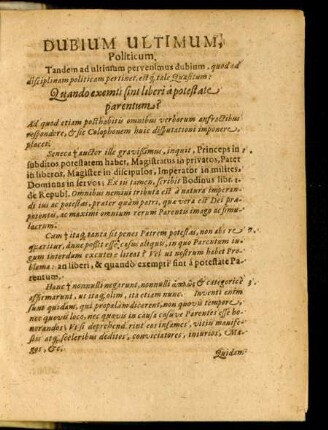 DUBIUM ULTIMUM,
Politicum.
Tandem ad ultimum pervenimus dubium, quod ad
disciplinam politicam pertinet, estq́, tale Quæsitum:
Quando exemti sint liberi à potestate
parentum?
Ad quod etiam posthabitis omnibus verborum anfractibus
respondere, & sic Colophonem huic disputationi imponere,
placet.
Seneca † auctor ille gravissimus, inquit, Princeps in
subditos potestatem habet, Magistratus in privatos, Pater
in liberos, Magister in discipulos, Imperator in milites,
Dominus in servos. Ex iis tamen, scribit Bodinus lib. 1.
de Republ. Omnibus nemini tributa est à natura imperan-
di in ac potestas, præter quàm patri, quæ vera est Dei præ-
potentis, ac maximi omnium rerum Parentis imago ac simu-
lacrum.
Cum † itaq́, tanta sit penes Patrem potestas, non abs re
quæritur, dune possit esse casus aliquis, in quo Parentum ju-
gum interdum excutere liceat? Vel ut nostrum habet Pro-
blema: an liberi, & quando exempti sint à potestate Pa-
rentum.
Hunc † nonnulli negarunt, nonnulli ἁπλῶς & categoricè
affirmarunt, ut itaq́, olim, ita etiam nunc. Inventi enim
sunt quidam, qui propalàm dicerent, non quovis tempore,
nec quovis loco, nec quovis in causa casuve Parentes esse ho-
norandos: Ut si deprehenderint eos infames, vitiis manife-
stis atq́, sceleribus deditos, conviciatores, injurios, Ma-
gos, &c.
Quidam